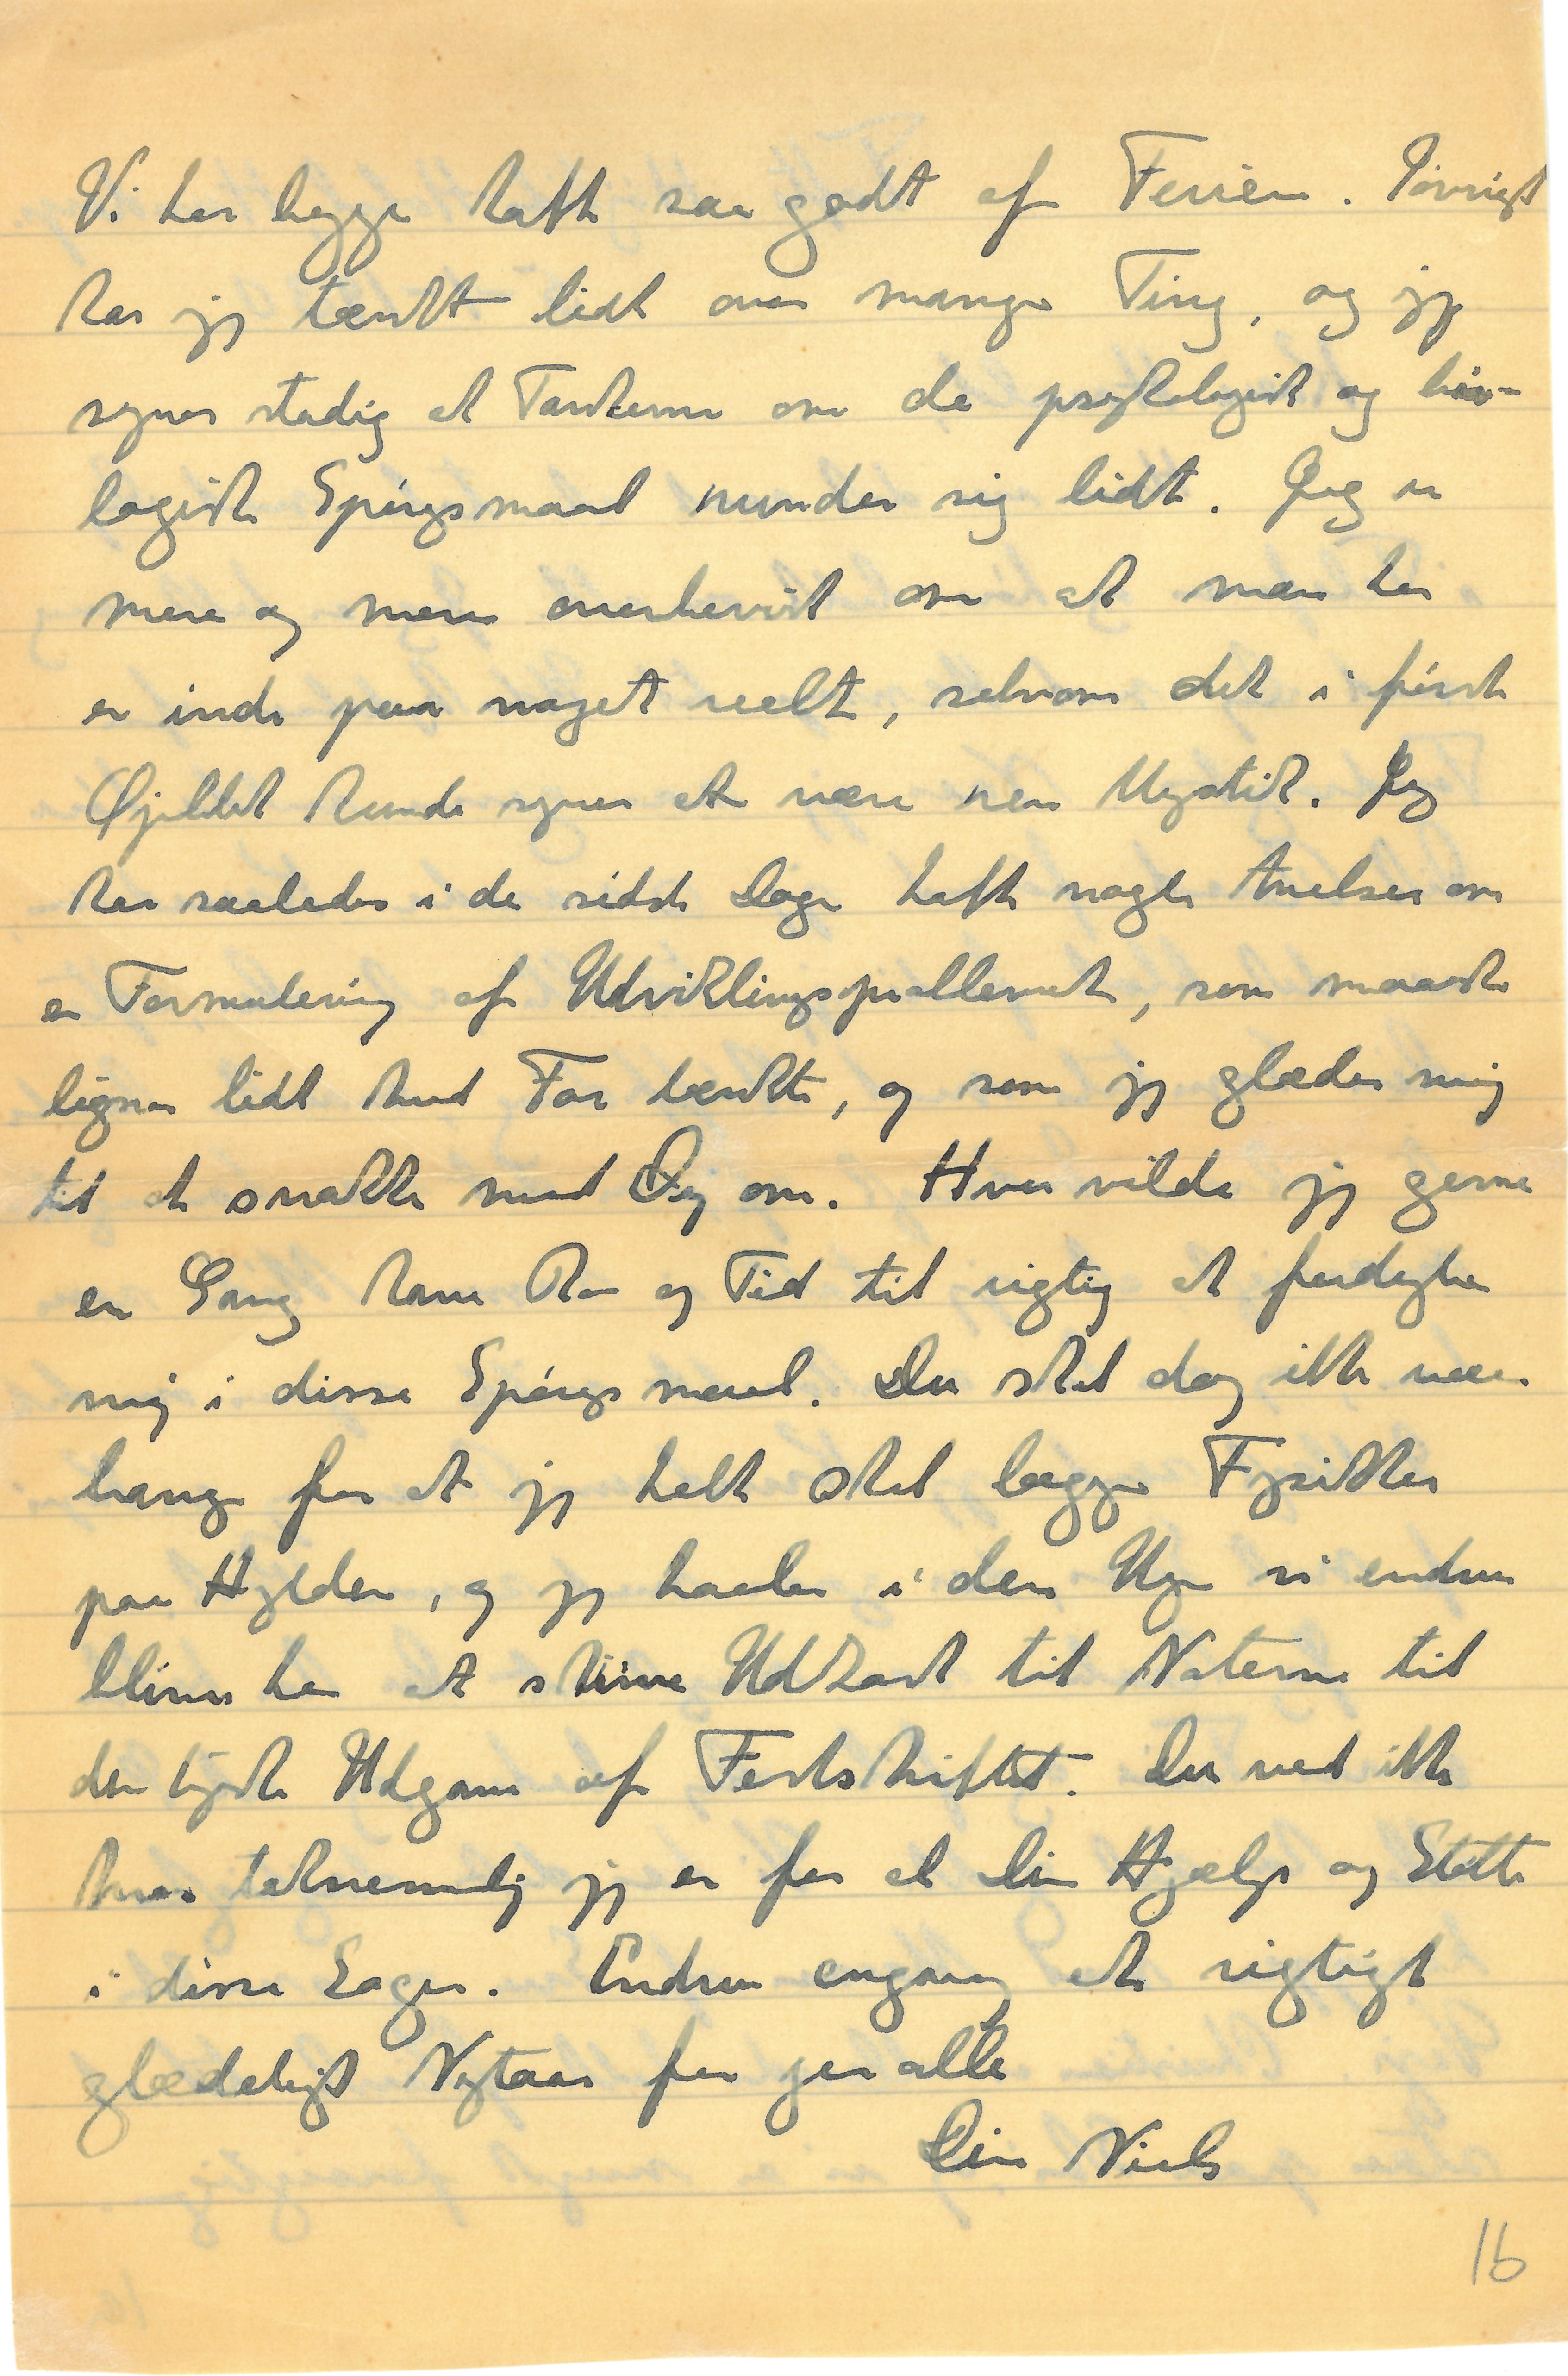 Vi har begge haft saa godt af Ferien. Iøvrigt
har jeg tænkt lidt over mange Ting, og jeg
synes stadig at Tankerne om de psykologisk og bio-
logiske Spørgsmaal runder sig lidt. Jeg er
mere og mere overbevist om at man her
er inde paa noget reelt, selvom det i første
Øjeblik kunde synes at være ren Mystik. Jeg
har saaledes i de sidste Dage haft nogle Anelser om
en Formulering af Udviklingsproblemet, som maaske
ligner lidt hvad Far tænkte, og som jeg glæder mig
til at snakke med Dig om. Hvor vilde jeg gerne
en Gang have Ro og Tid til rigtig at fordybe
mig i disse Spørgsmaal. Du skal dog ikke være
bange for at jeg helt skal lægge Fysikken
paa Hylden, og jeg haaber i den Uge vi endnu
bliver her at skrive Udkast til Noterne til
den tyske Udgave af Festskriftet. Du ved ikke
hvor taknemmelig jeg er for al Din Hjælp og Støtte
i disse Sager. Endnu engang et rigtigt
glædeligt Nytaar for jer alle
Din Niels
16